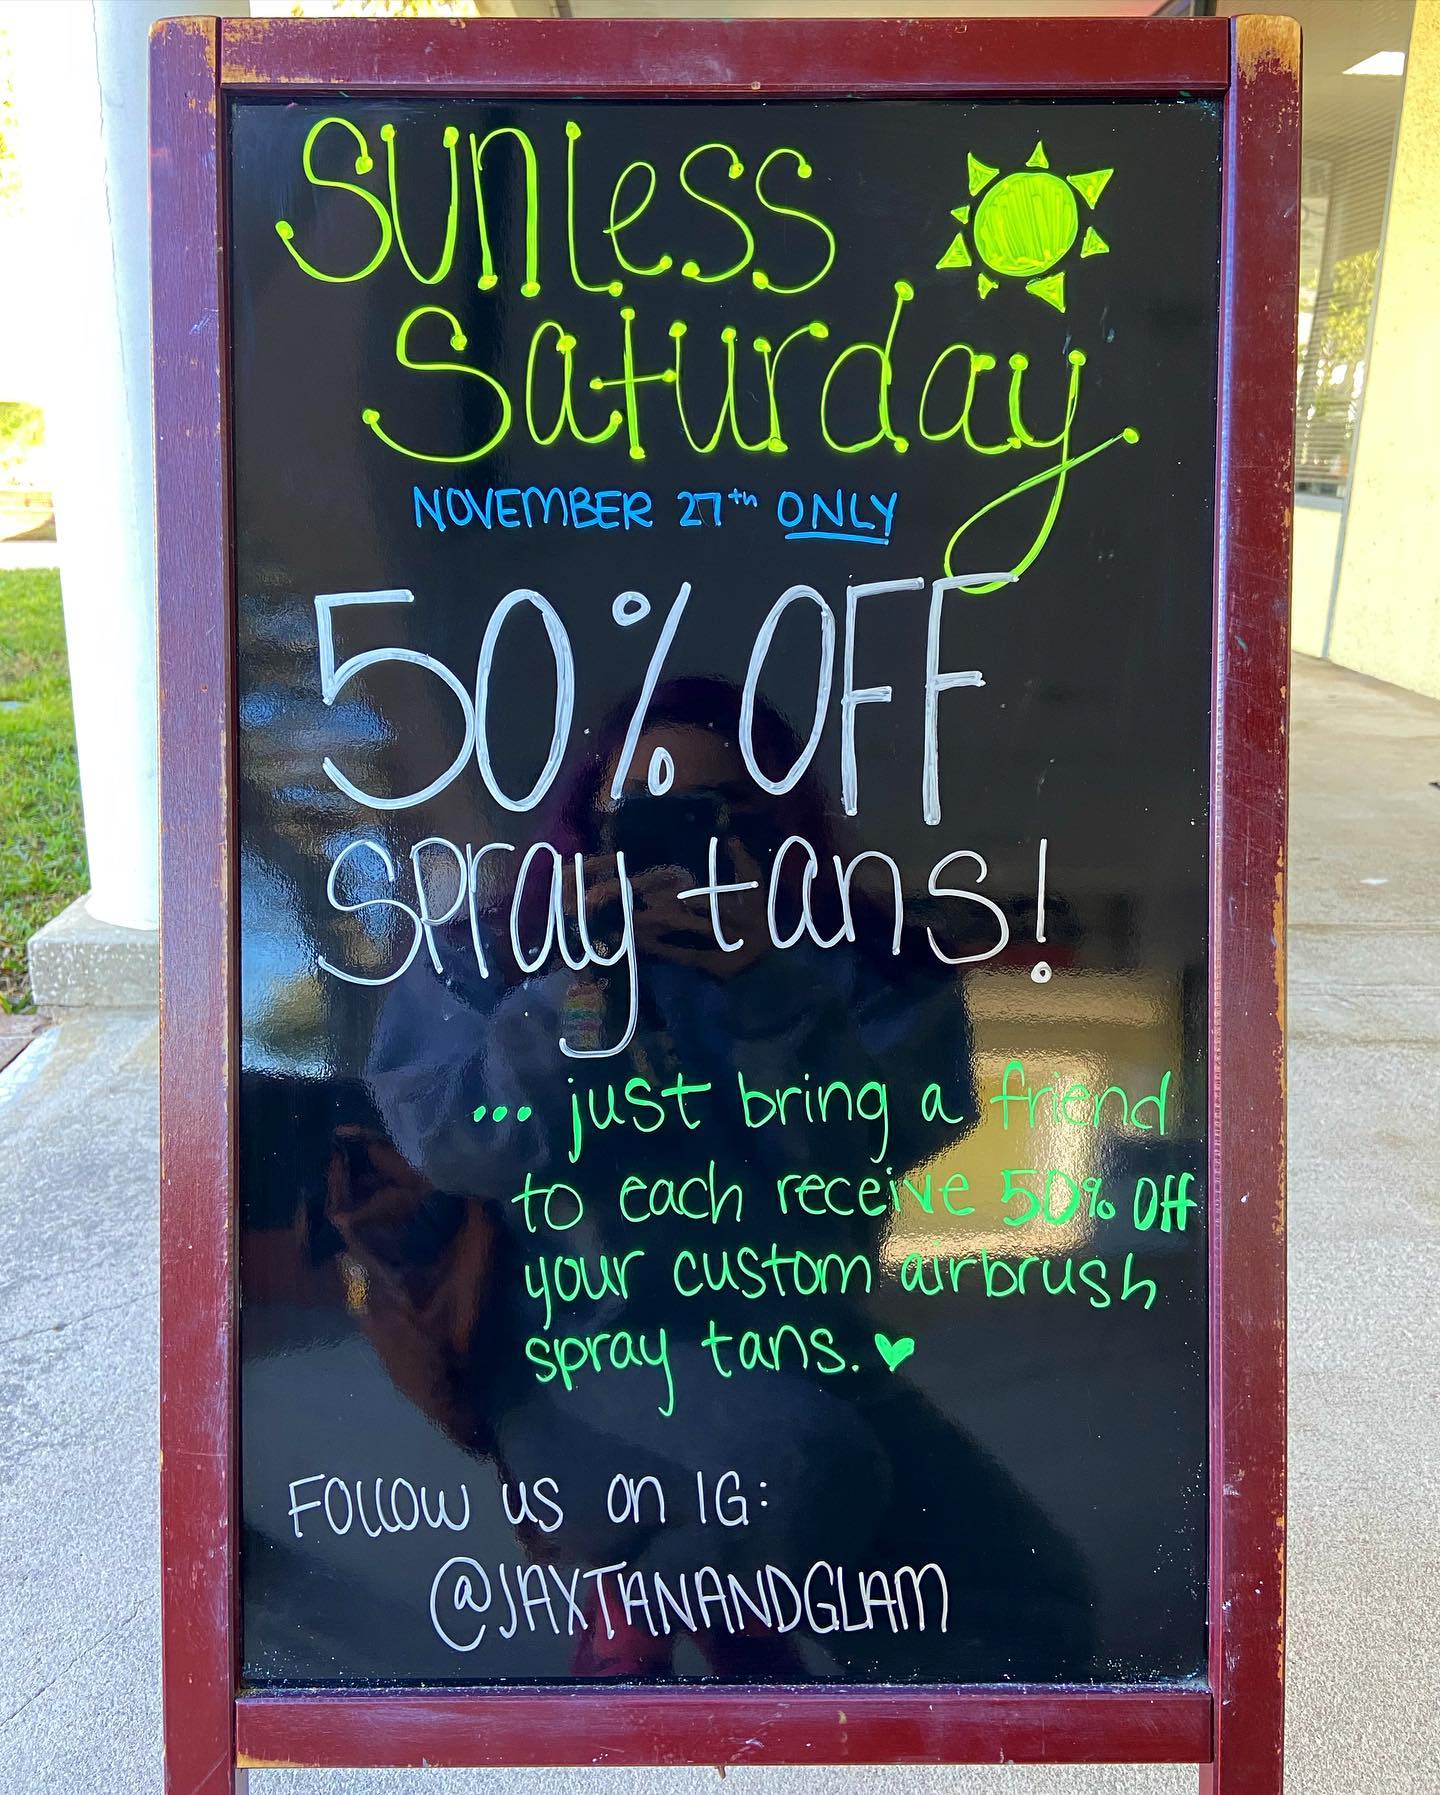 Sunless
Saturday
NOVEMBER 27th ONLY
50% OFF
spray tans!
... just bring a friend
to each receive 50% Off
your custom airbrush
spray tans.
Follow us on IG:
@JAXTANANDGLAM